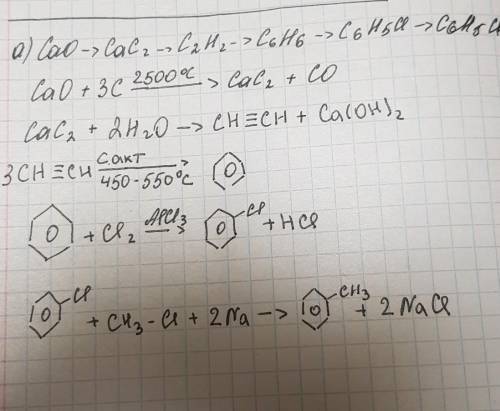 а) CaO → CaC₂ → C₂H₂ → C₆H₆ → C₆H₅Cl → C₆H₅C
CaO + 3C 2500°C → CaC₂ + CO
CaC₂ + 2H₂O → CH≡CH + Ca(OH)₂
3CH≡CH Cакт 450-550°C →
+ Cl₂ AlCl₃ → Cl + HCl
Cl + CH₃-Cl + 2Na → CH₃ + 2NaCl